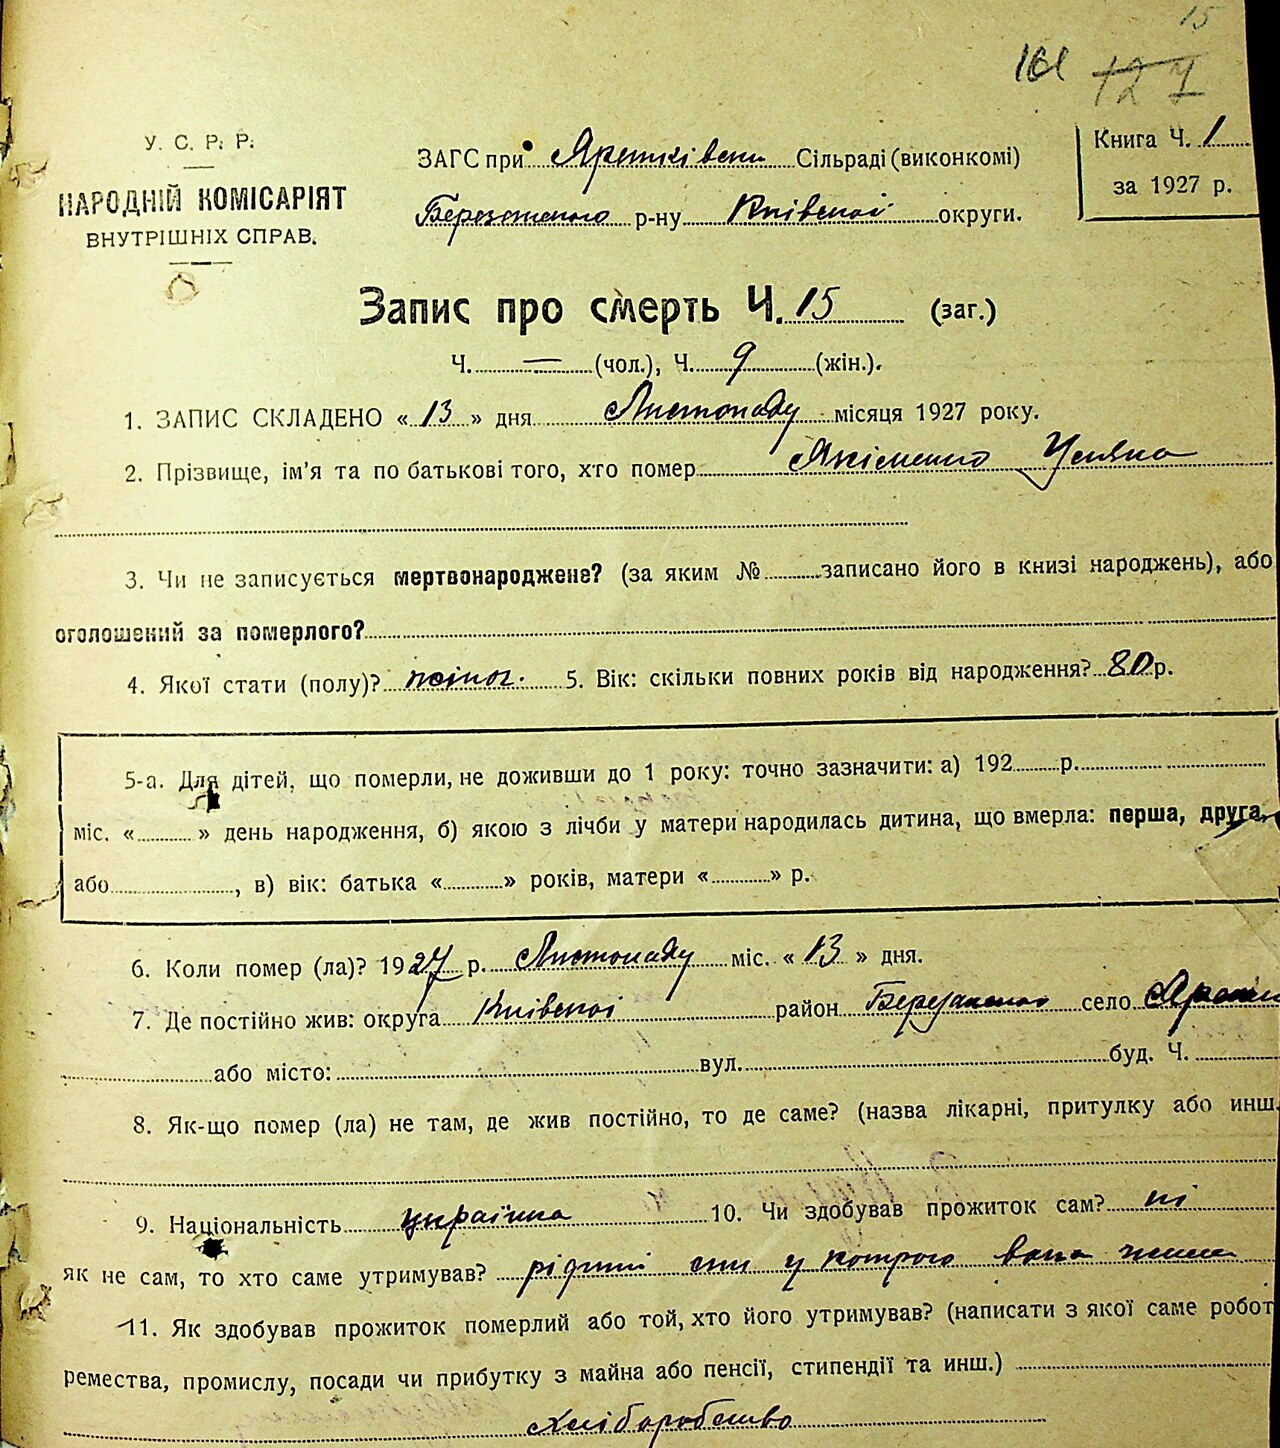 15
161 127
У. С. Р. Р.
НАРОДНІЙ КОМІСАРІЯТ
ВНУТРІШНІХ СПРАВ.
ЗАГС при Яреськівськ Сільраді (виконкомі)
Березанського р-ну Київської округи.
Книга Ч. 1
за 1927 р.
Запис про смерть Ч. 15 (заг.)
Ч. — (чол.), Ч. 9 (жін.).
1. ЗАПИС СКЛАДЕНО «13» дня Листопаду місяця 1927 року.
2. Прізвище, ім'я та по батькові того, хто помер Якіменко Уляна
3. Чи не записується мертвонароджене? (за яким № записано його в книзі народжень), або
оголошений за померлого?
4. Якої стати (полу)? жіноч. 5. Вік: скільки повних років від народження? 80 р.
5-а. Для дітей, що померли, не доживши до 1 року: точно зазначити: а) 192 р.
міс. « » день народження, б) якою з лічби у матери народилась дитина, що вмерла: перша, друга,
або , в) вік: батька « » років, матери « » р.
6. Коли помер (ла)? 1927 р. Листопаду міс. «13» дня.
7. Де постійно жив: округа Київської район Березанського село
або місто: вул. буд. Ч.
8. Як-що помер (ла) не там, де жив постійно, то де саме? (назва лікарні, притулку або инш.
9. Національність українка 10. Чи здобував прожиток сам? ні
як не сам, то хто саме утримував? рідний син у котрого вона жила
11. Як здобував прожиток померлий або той, хто його утримував? (написати з якої саме робот
ремества, промислу, посади чи прибутку з майна або пенсії, стипендії та инш.)
хліборобство